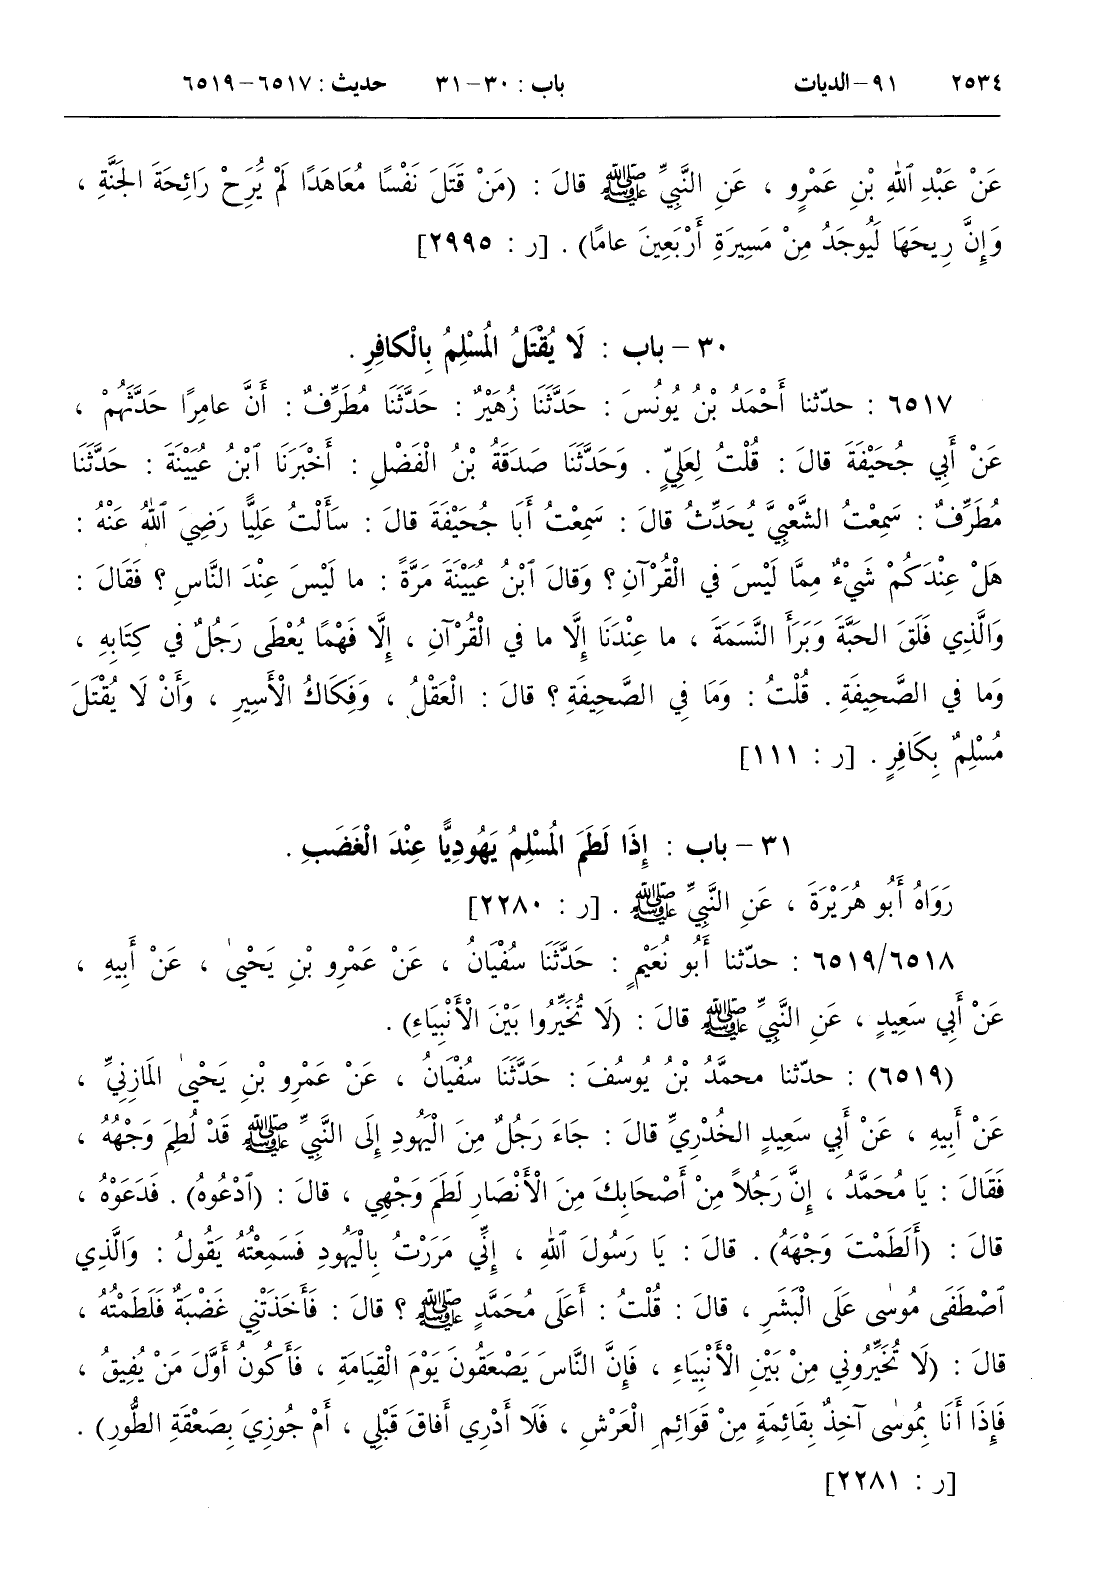 ٢٥٣٤ ٩١ – الديات باب : ٣٠ – ٣١ حديث : ٦٥١٧ – ٦٥١٩
عَنْ عَبْدِ ٱللهِ بْنِ عَمْرٍو ، عَنِ النَّبِيِّ ﷺ قالَ : (مَنْ قَتَلَ نَفْسًا مُعَاهَدًا لَمْ يُرَحْ رَائِحَةَ الجَنَّةِ ،
وَإِنَّ رِيحَهَا لَيُوجَدُ مِنْ مَسِيرَةِ أَرْبَعِينَ عامًا) . [ر : ٢٩٩٥]
٣٠ – باب : لَا يُقْتَلُ المُسْلِمُ بِالْكافِرِ .
٦٥١٧ : حدّثنا أَحْمَدُ بْنُ يُونُسَ : حَدَّثَنَا زُهَيْرٌ : حَدَّثَنَا مُطَرِّفٌ : أَنَّ عامِرًا حَدَّثَهُمْ ،
عَنْ أَبِي جُحَيْفَةَ قالَ : قُلْتُ لِعَلِيٍّ . وَحَدَّثَنَا صَدَقَةُ بْنُ الْفَضْلِ : أَخْبَرَنَا ٱبْنُ عُيَيْنَةَ : حَدَّثَنَا
مُطَرِّفٌ : سَمِعْتُ الشَّعْبِيَّ يُحَدِّثُ قالَ : سَمِعْتُ أَبَا جُحَيْفَةَ قالَ : سَأَلْتُ عَلِيًّا رَضِيَ ٱللهُ عَنْهُ :
هَلْ عِنْدَكُمْ شَيْءٌ مِمَّا لَيْسَ فِي الْقُرْآنِ ؟ وَقالَ ٱبْنُ عُيَيْنَةَ مَرَّةً : ما لَيْسَ عِنْدَ النَّاسِ ؟ فَقَالَ :
وَالَّذِي فَلَقَ الحَبَّةَ وَبَرَأَ النَّسَمَةَ ، ما عِنْدَنَا إِلَّا ما فِي الْقُرْآنِ ، إِلَّا فَهْمًا يُعْطَى رَجُلٌ فِي كِتَابِهِ ،
وَما فِي الصَّحِيفَةِ . قُلْتُ : وَمَا فِي الصَّحِيفَةِ ؟ قالَ : الْعَقْلُ ، وَفِكَاكُ الْأَسِيرِ ، وَأَنْ لَا يُقْتَلَ
مُسْلِمٌ بِكَافِرٍ . [ر : ١١١]
٣١ – باب : إِذَا لَطَمَ المُسْلِمُ يَهُودِيًّا عِنْدَ الْغَضَبِ .
رَوَاهُ أَبُو هُرَيْرَةَ ، عَنِ النَّبِيِّ ﷺ . [ر : ٢٢٨٠]
٦٥١٩/٦٥١٨ : حدّثنا أَبُو نُعَيْمٍ : حَدَّثَنَا سُفْيَانُ ، عَنْ عَمْرِو بْنِ يَحْيىٰ ، عَنْ أَبِيهِ ،
عَنْ أَبِي سَعِيدٍ ، عَنِ النَّبِيِّ ﷺ قالَ : (لَا تُخَيِّرُوا بَيْنَ الْأَنْبِيَاءِ) .
(٦٥١٩) : حدّثنا محمَّدُ بْنُ يُوسُفَ : حَدَّثَنَا سُفْيَانُ ، عَنْ عَمْرِو بْنِ يَحْيىٰ المَازِنِيِّ ،
عَنْ أَبِيهِ ، عَنْ أَبِي سَعِيدٍ الخُدْرِيِّ قالَ : جَاءَ رَجُلٌ مِنَ الْيَهُودِ إِلَى النَّبِيِّ ﷺ قَدْ لُطِمَ وَجْهُهُ ،
فَقَالَ : يَا مُحَمَّدُ ، إِنَّ رَجُلاً مِنْ أَصْحَابِكَ مِنَ الْأَنْصَارِ لَطَمَ وَجْهِي ، قالَ : (ٱدْعُوهُ) . فَدَعَوْهُ ،
قالَ : (أَلَطَمْتَ وَجْهَهُ) . قالَ : يَا رَسُولَ ٱللهِ ، إِنِّي مَرَرْتُ بِالْيَهُودِ فَسَمِعْتُهُ يَقُولُ : وَالَّذِي
ٱصْطَفَى مُوسٰى عَلَى الْبَشَرِ ، قالَ : قُلْتُ : أَعَلَى مُحَمَّدٍ ﷺ ؟ قالَ : فَأَخَذَتْنِي غَضْبَةٌ فَلَطَمْتُهُ ،
قالَ : (لَا تُخَيِّرُونِي مِنْ بَيْنِ الْأَنْبِيَاءِ ، فَإِنَّ النَّاسَ يَصْعَقُونَ يَوْمَ الْقِيَامَةِ ، فَأَكُونُ أَوَّلَ مَنْ يُفِيقُ ،
فَإِذَا أَنَا بِمُوسٰى آخِذٌ بِقَائِمَةٍ مِنْ قَوَائِمِ الْعَرْشِ ، فَلَا أَدْرِي أَفاقَ قَبْلِي ، أَمْ جُوزِيَ بِصَعْقَةِ الطُّورِ) .
[ر : ٢٢٨١]